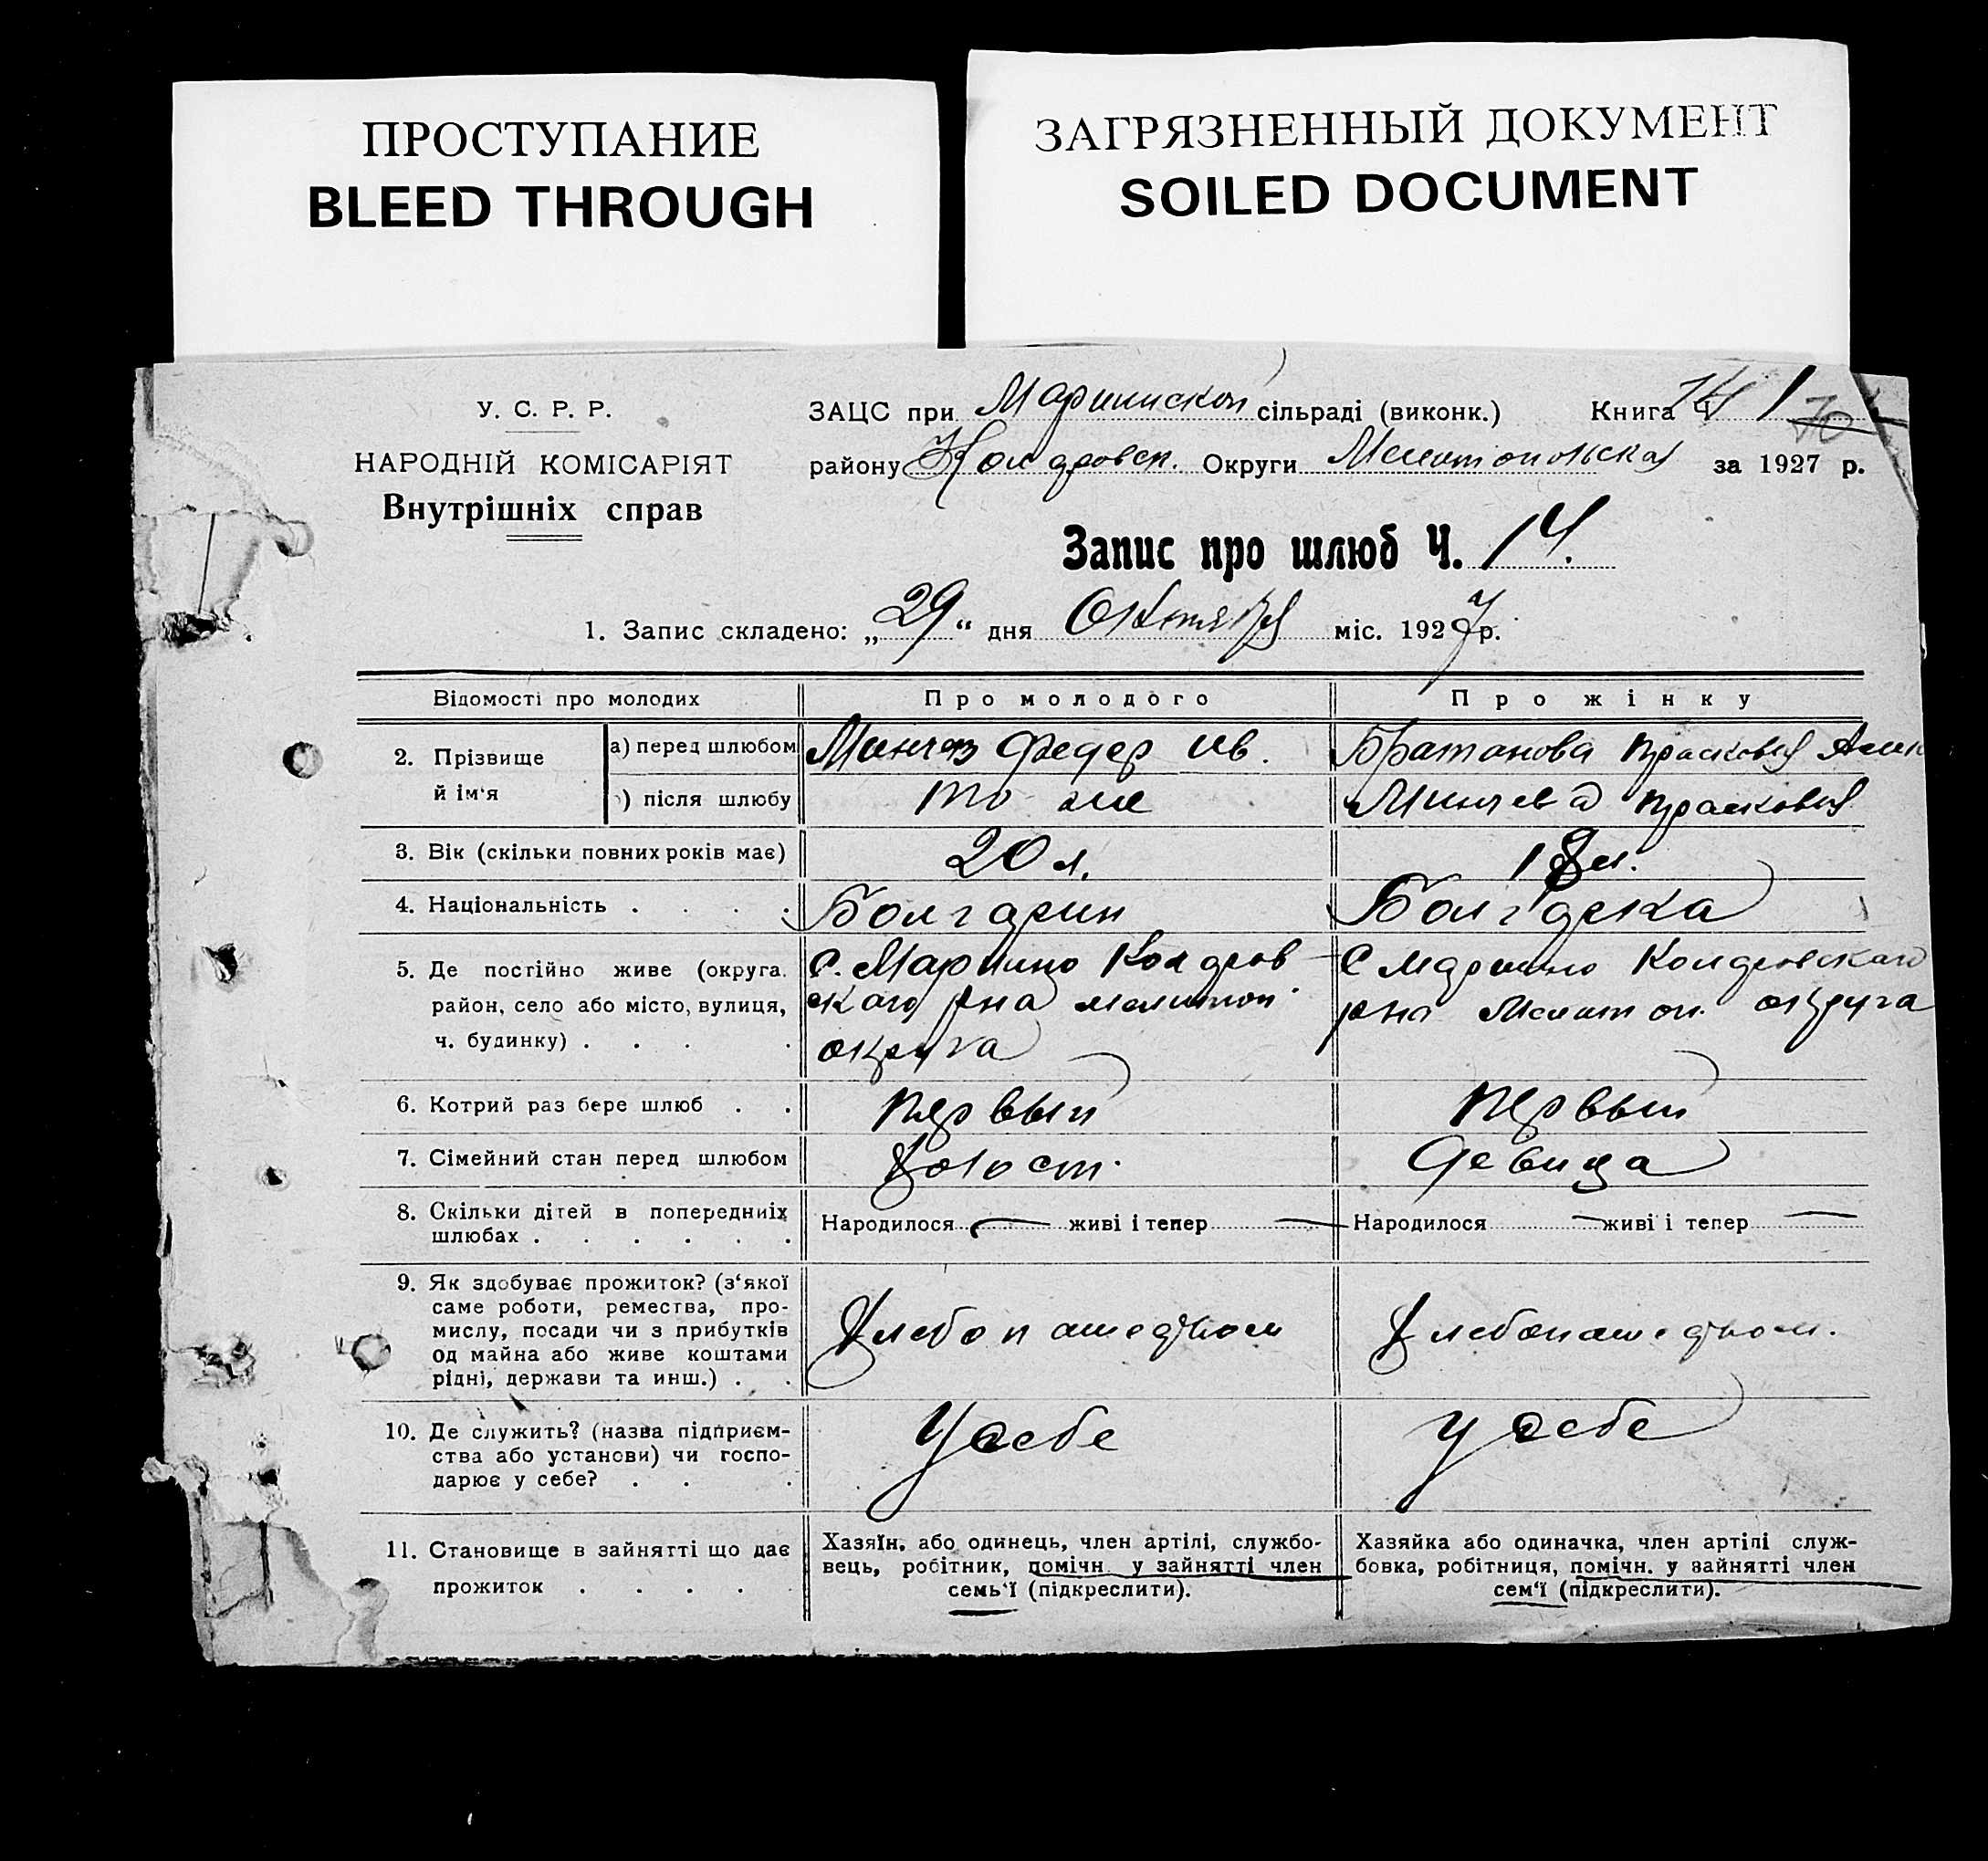 ПРОСТУПАНИЕ
BLEED THROUGH
ЗАГРЯЗНЕННЫЙ ДОКУМЕНТ
SOILED DOCUMENT
У. С. Р. Р.
НАРОДНІЙ КОМІСАРІЯТ
Внутрішніх справ
ЗАЦС при Мариинской сільраді (виконк.) Книга Ч 1
району Колдровск. Округи Мелитопольская за 1927 р.
Запис про шлюб Ч. 14.
1. Запис складено: „29“ дня Октября міс. 1927 р.
Відомості про молодих Про молодого Про жінку
2. Прізвище й ім‘я
а) перед шлюбом Минчев Федер Ив. Братанова Прасковья
) після шлюбу то же Минчева Прасковья
3. Вік (скільки повних років має) 20 л. 18 л.
4. Національність . . . . Болгарин Болгарка
5. Де постійно живе (округа, район, село або місто, вулиця, ч. будинку) . . . .
С. Марино Колдров
скаго рна мелитоп
округа
С Марино Колдровскаго
рна Мелитоп. округа
6. Котрий раз бере шлюб . . первый первый
7. Сімейний стан перед шлюбом Холост. Девица
8. Скільки дітей в попередниіх шлюбах . . . . . .
Народилося — живі і тепер — Народилося — живі і тепер —
9. Як здобуває прожиток? (з‘якої
саме роботи, ремества, про-
мислу, посади чи з прибутків
од майна або живе коштами
рідні, держави та инш.) . .
Хлебопашеством Хлебопашеством.
10. Де служить? (назва підприєм-
ства або установи) чи госпо-
дарює у себе? . . .
У себе у себе
11. Становище в зайнятті що дає
прожиток . . . .
Хазяїн, або одинець, член артілі, службо-
вець, робітник, помічн. у зайнятті член
семь‘ї (підкреслити).
Хазяйка або одиначка, член артілі служ-
бовка, робітниця, помічн. у зайнятті член
сем‘ї (підкреслити).